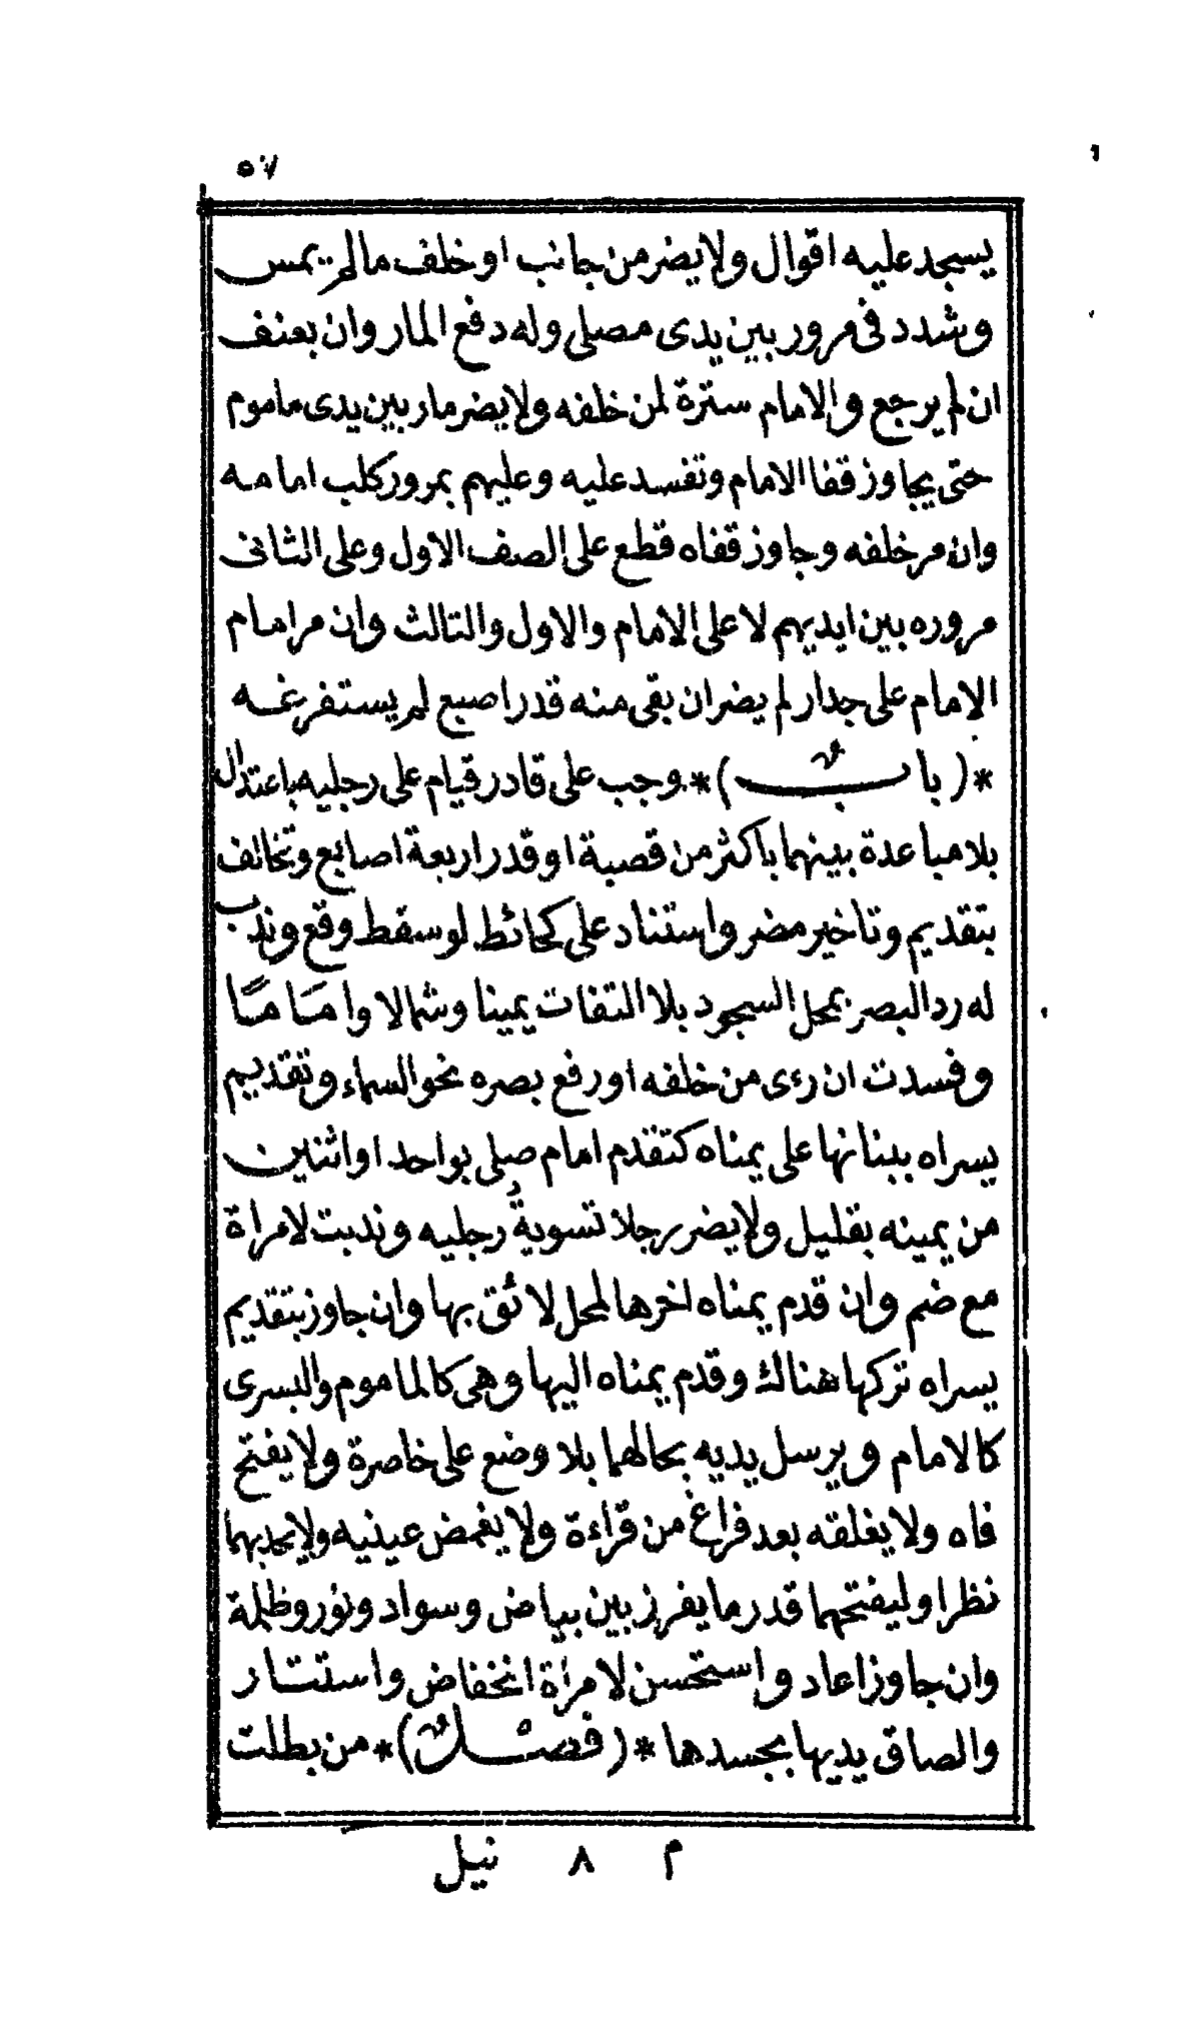 ٥٧
يسجد عليه اقوال ولا يضر من جانب او خلف مالم يمس
وشدد فى مرور بين يدى مصلى وله دفع المار وان بعنف
ان لم يرجع والامام سترة لمن خلفه ولا يضر مار بين يدى ماموم
حتى يجاوز قفا الامام وتفسد عليه وعليهم بمرور كلب امامه
وان مر خلفه وجاوز قفاه قطع على الصف الاول وعلى الثانى
مروره بين ايديهم لا على الامام والاول والثالث وان مر امام
الامام على جدار لم يضر ان بقى منه قدر اصبع لم يستفرغه
*(باب)* وجب على قادر قيام على رجليه باعتدال
بلا مباعدة بينهما باكثر من قصبة او قدر اربعة اصابع وتخالف
بتقديم وتاخير مضر واستناد على كحائط لو سقط وقع وندب
له رد البصر بمحل السجود بلا التفات يمينا وشمالا وامَامًا
وفسدت ان رءى من خلفه او رفع بصره نحو السماء وتقديم
يسراه ببنانها على يمناه كتقدم امام صلى بواحد او اثنين
من يمينه بقليل ولا يضر رجلا تسويةُ رجليه وندبت لامراة
مع ضم وان قدم يمناه اخرها لمحل لائق بها وان جاوز بتقديم
يسراه تركها هناك وقدم يمناه اليها وهى كالماموم واليسرى
كالامام ويرسل يديه بحالهما بلا وضع على خاصرة ولا يفتح
فاه ولا يغلقه بعد فراغ من قراءة ولا يغمض عينيه ولا يحد بهما
نظرا وليفتحهما قدر ما يفرز بين بياض وسواد ونور وظلمة
وان جاوز اعاد واستحسن لامرأة انخفاض واستتار
والصاق يديها بجسدها *(فصل)* من بطلت
م ٨ نيل